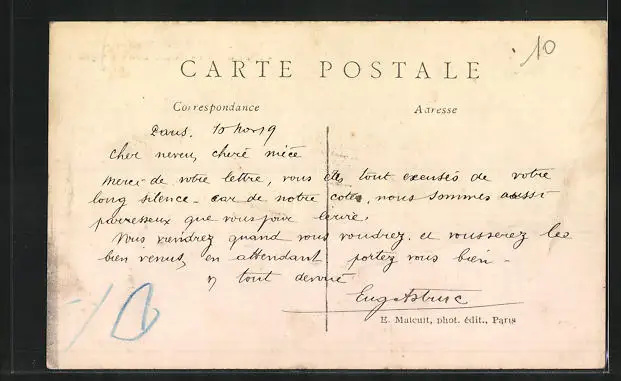 10
CARTE POSTALE
Correspondance
Adresse
Paris. 10 Nov 9
Cher neveu, chere nièce
Merci de votre lettre, vous etes tout excusés de votre
long silence - car de notre coté, nous sommes aussi
parresseux que vous pour écrire.
Vous viendrez quand vous voudrez. et vous serez les
bien venus, en attendant portez vous bien -
tout devoué
Eug Astruc
E. Malcuit, phot. édit., Paris